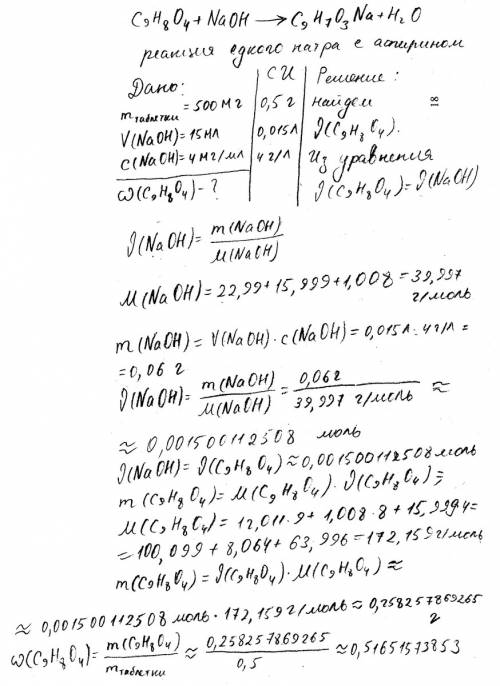 C₉H₈O₄ + NaOH ⟶ C₉H₇O₃Na + H₂O
реакция едкого натра с аспирином
Дано: | СИ | Решение:
m таблетки = 500 мг | 0,5 г | найдем
V(NaOH) = 15 мл | 0,015 л | ℐ(C₉H₈O₄).
c(NaOH) = 4 мг/мл | 4 г/л | Из уравнения
ω(C₉H₈O₄) - ? | ℐ(C₉H₈O₄) = ℐ(NaOH)
ℐ(NaOH) = m(NaOH) / M(NaOH)
M(NaOH) = 22,99 + 15,999 + 1,008 = 39,997 г/моль
m(NaOH) = V(NaOH) · c(NaOH) = 0,015 л · 4 г/л =
= 0,06 г
ℐ(NaOH) = m(NaOH) / M(NaOH) = 0,06 г / 39,997 г/моль ≈
≈ 0,001500112508 моль
ℐ(NaOH) = ℐ(C₉H₈O₄) ≈ 0,001500112508 моль
m(C₉H₈O₄) = M(C₉H₈O₄) · ℐ(C₉H₈O₄) =
M(C₉H₈O₄) = 12,011·9 + 1,008·8 + 15,999·4 =
= 100,099 + 8,064 + 63,996 = 172,159 г/моль
m(C₉H₈O₄) = ℐ(C₉H₈O₄) · M(C₉H₈O₄) ≈
≈ 0,001500112508 моль · 172,159 г/моль ≈ 0,258257869265 г
ω(C₉H₈O₄) = m(C₉H₈O₄) / m таблетки ≈ 0,258257869265 / 0,5 ≈ 0,51651573853